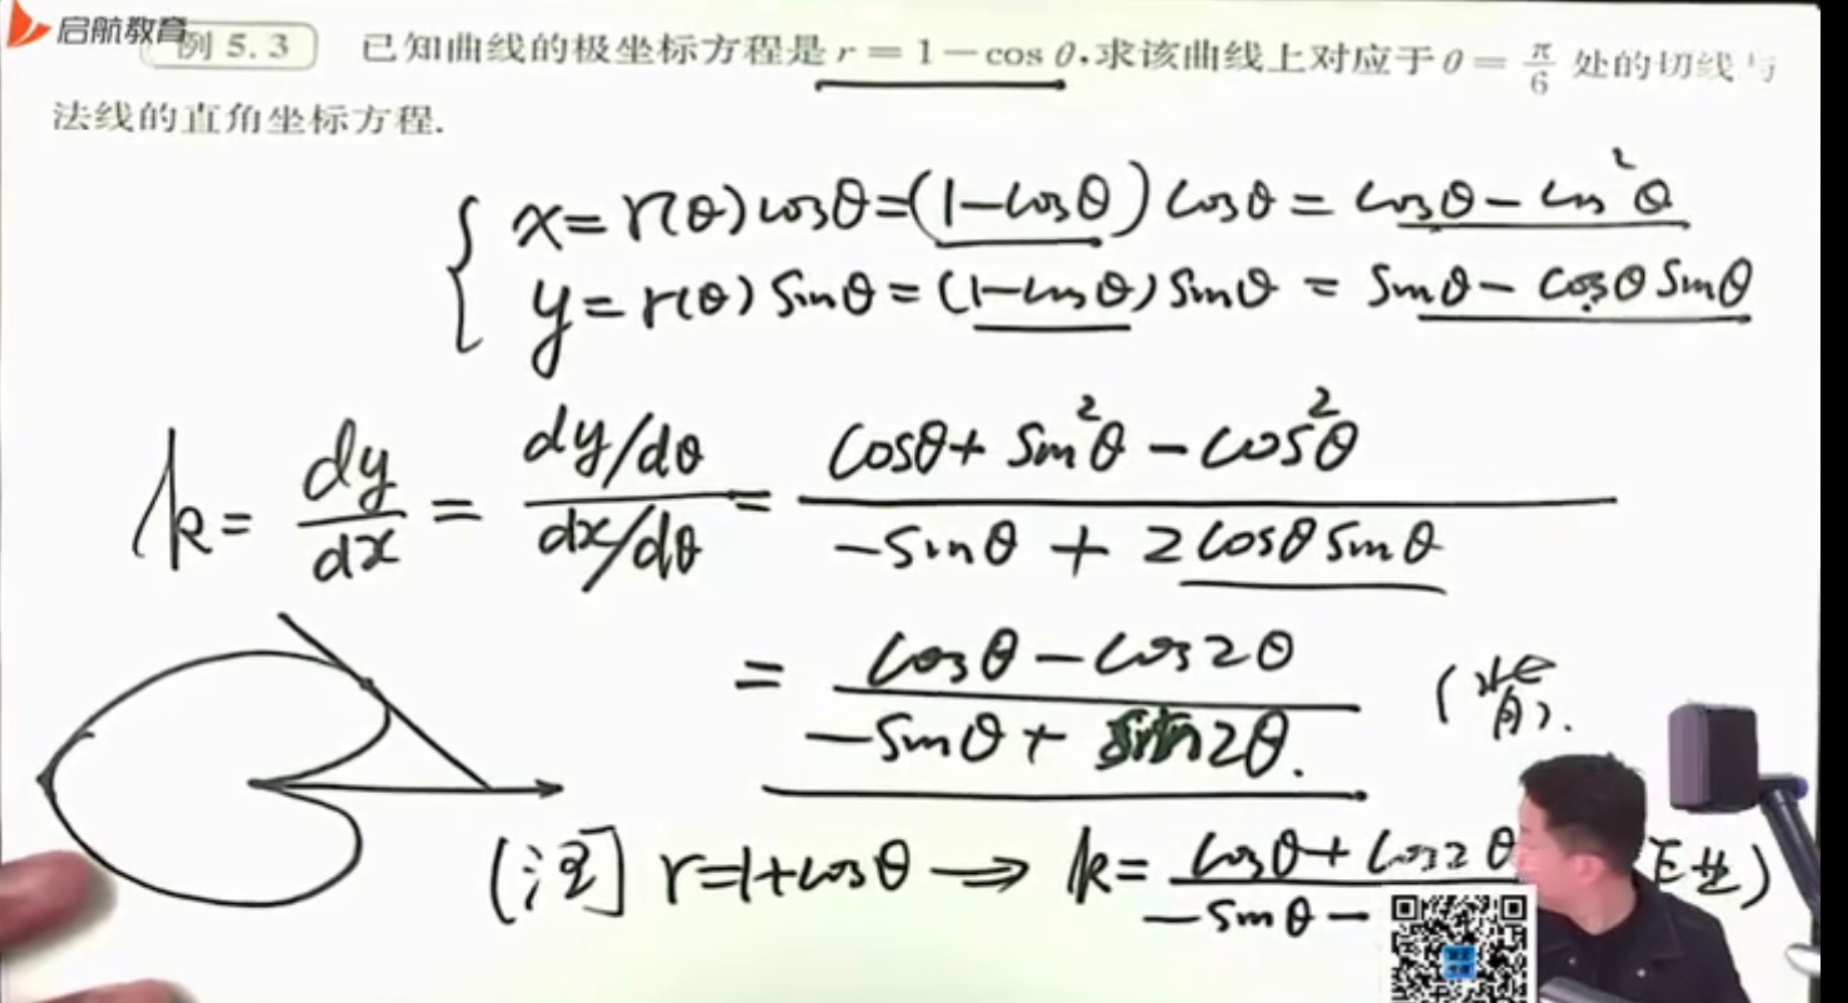 启航教育
例 5.3 已知曲线的极坐标方程是 r = 1 − cos θ,求该曲线上对应于 θ = π/6 处的切线与
法线的直角坐标方程.
x = r(θ) cosθ = (1−cosθ) cosθ = cosθ − cos²θ
y = r(θ) sinθ = (1−cosθ) sinθ = sinθ − cosθ sinθ
k = dy/dx = (dy/dθ)/(dx/dθ) = (cosθ + sin²θ − cos²θ)/(−sinθ + 2cosθ sinθ)
= (cosθ − cos2θ)/(−sinθ + sin2θ). (背).
[注] r = 1+cosθ → k = (cosθ + cos2θ)/(−sinθ −